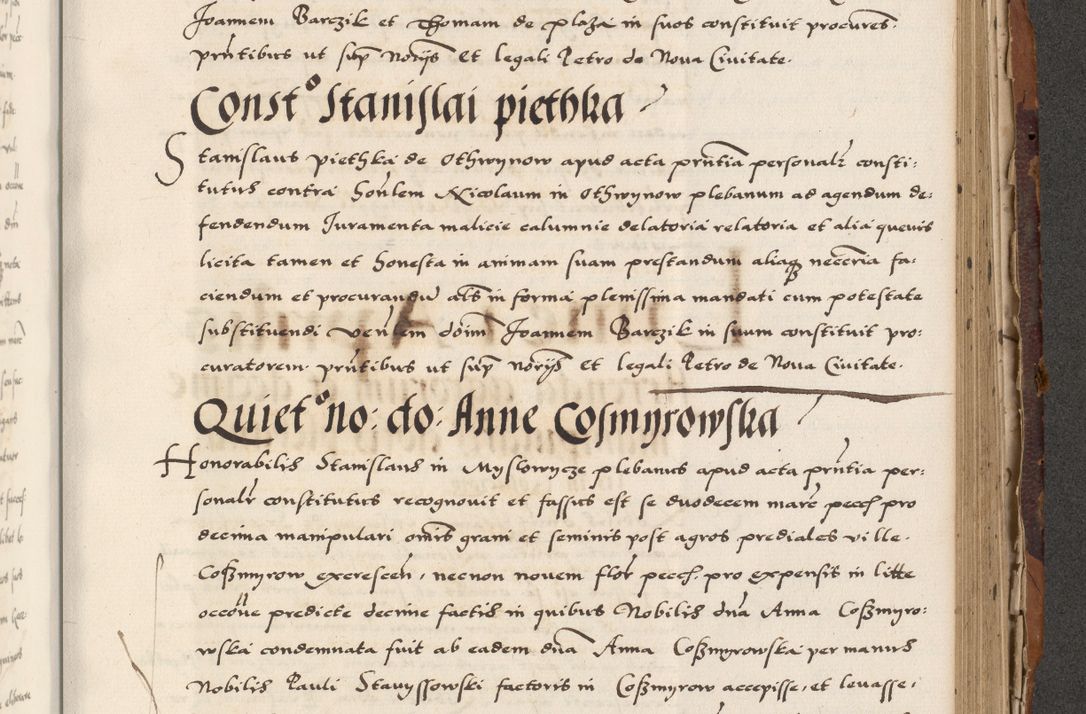 Joannem Barczik et Thomam de plaza in suos constituit procures.
prntibus ut sup norijs Et legali Petro de Nova Civitate.
Consto Stanislai piethka
Stanislaus piethka de Othwynow apud acta prntia personalr consti:
tutus contra honlem Nicolaum in Othwynow plebanum ad agendum de:
fendendum Juramenta malicie calumnie delatoria relatoria et alia quevis
licita tamen et honesta in animam suam prestandum aliaq neccria fa:
ciendum et procurandu als in forma plenissima mandati cum potestate
substituendi venlem doim Joannem Barczik in suum constituit pro:
curatorem. prntibus ut sup norijs Et legali Petro de Nova Civitate.
Quieto no: do: Anne Cosmyrowska
Honorabilis Stanislaus in Myslowycze plebanus apud acta prntia per:
sonalr constitutus recognovit et fassus est se duodecem marc pecc pro
decima manipulari omis grani et seminis post agros prediales ville.
Coszmyrow excrescen, necnon novem flor pecc. pro expensis in litte
occoue predicte decime factis in quibus Nobilis dna Anna Coszmyro:
wska condemnata fuit ab eadem dna Anna Coszmyrowska per manus
Nobilis Pauli Stavyssowski factoris in Coszmyrow accepisse, et levasse,